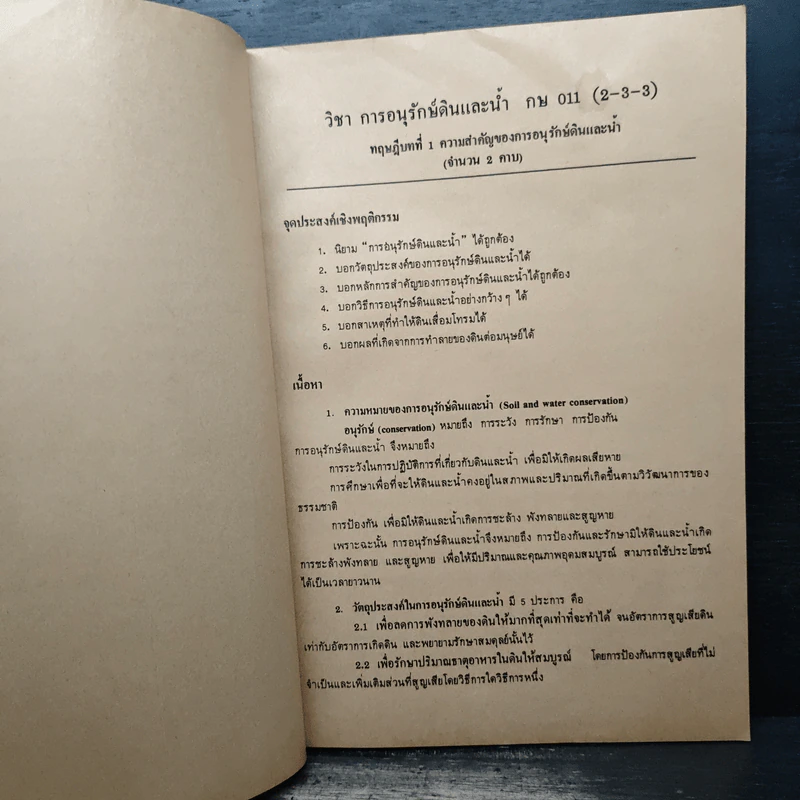 วิชา การอนุรักษ์ดินและน้ำ กษ 011 (2-3-3)
ทฤษฎีบทที่ 1 ความสำคัญของการอนุรักษ์ดินและน้ำ
(จำนวน 2 คาบ)
จุดประสงค์เชิงพฤติกรรม
1. นิยาม "การอนุรักษ์ดินและน้ำ" ได้ถูกต้อง
2. บอกวัตถุประสงค์ของการอนุรักษ์ดินและน้ำได้
3. บอกหลักการสำคัญของการอนุรักษ์ดินและน้ำได้ถูกต้อง
4. บอกวิธีการอนุรักษ์ดินและน้ำอย่างกว้าง ๆ ได้
5. บอกสาเหตุที่ทำให้ดินเสื่อมโทรมได้
6. บอกผลที่เกิดจากการทำลายของดินต่อมนุษย์ได้
เนื้อหา
1. ความหมายของการอนุรักษ์ดินและน้ำ (Soil and water conservation)
อนุรักษ์ (conservation) หมายถึง การระวัง การรักษา การป้องกัน
การอนุรักษ์ดินและน้ำ จึงหมายถึง
การระวังในการปฏิบัติการที่เกี่ยวกับดินและน้ำ เพื่อมิให้เกิดผลเสียหาย
การศึกษาเพื่อที่จะให้ดินและน้ำคงอยู่ในสภาพและปริมาณที่เกิดขึ้นตามวิวัฒนาการของ
ธรรมชาติ
การป้องกัน เพื่อมิให้ดินและน้ำเกิดการชะล้าง พังทลายและสูญหาย
เพราะฉะนั้น การอนุรักษ์ดินและน้ำจึงหมายถึง การป้องกันและรักษามิให้ดินและน้ำเกิด
การชะล้างพังทลาย และสูญหาย เพื่อให้มีปริมาณและคุณภาพอุดมสมบูรณ์ สามารถใช้ประโยชน์
ได้เป็นเวลายาวนาน
2. วัตถุประสงค์ในการอนุรักษ์ดินและน้ำ มี 5 ประการ คือ
2.1 เพื่อลดการพังทลายของดินให้มากที่สุดเท่าที่จะทำได้ จนอัตราการสูญเสียดิน
เท่ากับอัตราการเกิดดิน และพยายามรักษาสมดุลย์นั้นไว้
2.2 เพื่อรักษาปริมาณธาตุอาหารในดินให้สมบูรณ์ โดยการป้องกันการสูญเสียที่ไม่
จำเป็นและเพิ่มเติมส่วนที่สูญเสียโดยวิธีการใดวิธีการหนึ่ง